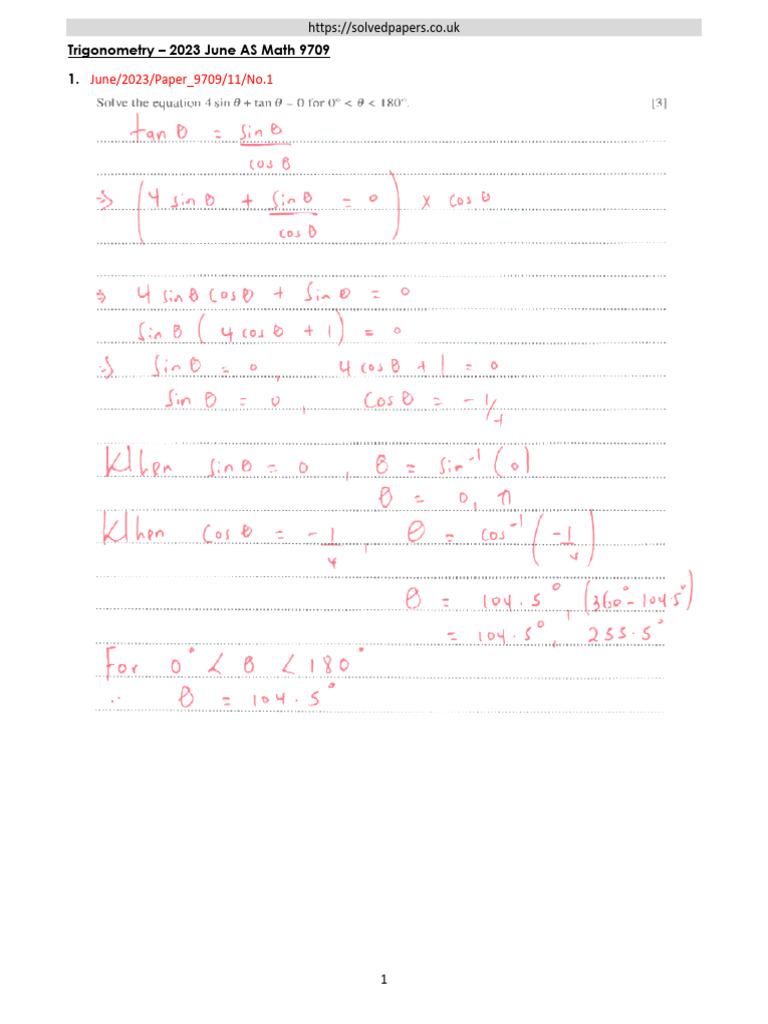 https://solvedpapers.co.uk
Trigonometry – 2023 June AS Math 9709
1. June/2023/Paper_9709/11/No.1
Solve the equation 4 sin θ + tan θ = 0 for 0° < θ < 180°. [3]
tan θ = sin θ / cos θ
⇒ (4 sin θ + sin θ / cos θ = 0) × cos θ
⇒ 4 sin θ cos θ + sin θ = 0
sin θ (4 cos θ + 1) = 0
⇒ sin θ = 0, 4 cos θ + 1 = 0
sin θ = 0, cos θ = -1/4
When sin θ = 0, θ = sin⁻¹(0)
θ = 0, π
When cos θ = -1/4, θ = cos⁻¹(-1/4)
θ = 104.5°, (360° - 104.5°)
= 104.5°, 255.5°
For 0° < θ < 180°
∴ θ = 104.5°
1